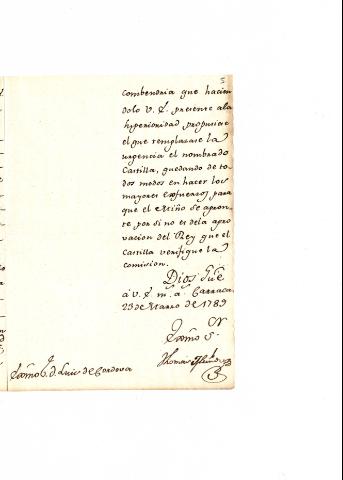 5
combendria que hacien
dolo V. E. presente ala
Superioridad propusiese
el que remplazase la
urgencia el nombrado
Castilla, quedando de to
dos modos en hacer los
mayores esfuerzos, para
que el Miño se apron
te por si no es dela apro
vacion del Rey que el
Castilla verifique la
comision.
Dios gue
á V. E. m. a. Carraca
23 de Marzo de 1789
Exmo S.
Exmo S. D. Luis de Cordova